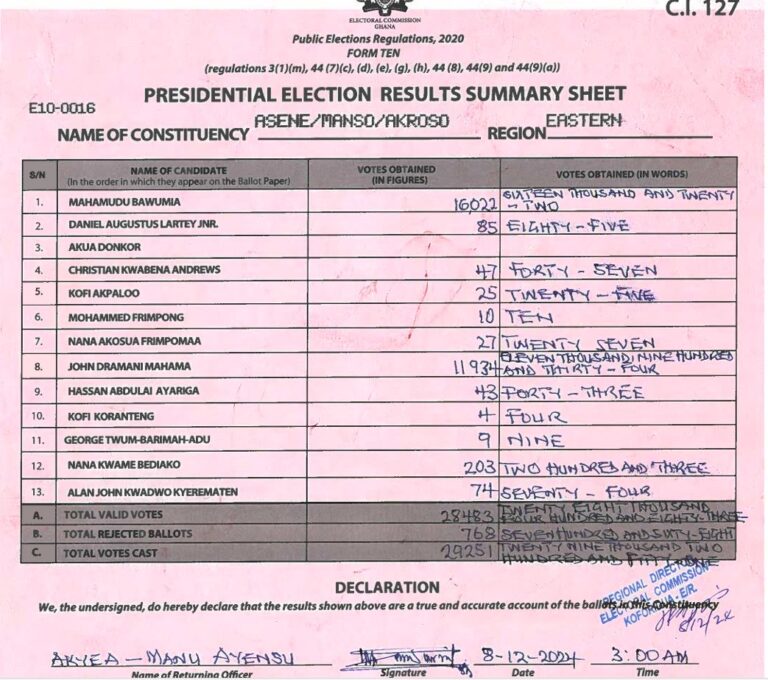 C.I. 127
ELECTORAL COMMISSION
GHANA
Public Elections Regulations, 2020
FORM TEN
(regulations 3(1)(m), 44 (7)(c), (d), (e), (g), (h), 44 (8), 44(9) and 44(9)(a))
PRESIDENTIAL ELECTION RESULTS SUMMARY SHEET
E10-0016
NAME OF CONSTITUENCY ASENE/MANSO/AKROSO REGION EASTERN
S/N NAME OF CANDIDATE (In the order in which they appear on the Ballot Paper) VOTES OBTAINED (IN FIGURES) VOTES OBTAINED (IN WORDS)
1. MAHAMUDU BAWUMIA 16022 SIXTEEN THOUSAND AND TWENTY - TWO
2. DANIEL AUGUSTUS LARTEY JNR. 85 EIGHTY - FIVE
3. AKUA DONKOR
4. CHRISTIAN KWABENA ANDREWS 47 FORTY - SEVEN
5. KOFI AKPALOO 25 TWENTY - FIVE
6. MOHAMMED FRIMPONG 10 TEN
7. NANA AKOSUA FRIMPOMAA 27 TWENTY SEVEN
8. JOHN DRAMANI MAHAMA 11934 ELEVEN THOUSAND, NINE HUNDRED AND THIRTY - FOUR
9. HASSAN ABDULAI AYARIGA 43 FORTY - THREE
10. KOFI KORANTENG 4 FOUR
11. GEORGE TWUM-BARIMAH-ADU 9 NINE
12. NANA KWAME BEDIAKO 203 TWO HUNDRED AND THREE
13. ALAN JOHN KWADWO KYEREMATEN 74 SEVENTY - FOUR
A. TOTAL VALID VOTES 28483 TWENTY EIGHT THOUSAND FOUR HUNDRED AND EIGHTY-THREE
B. TOTAL REJECTED BALLOTS 768 SEVEN HUNDRED AND SIXTY-EIGHT
C. TOTAL VOTES CAST 29251 TWENTY NINE THOUSAND TWO HUNDRED AND FIFTY ONE
DECLARATION
We, the undersigned, do hereby declare that the results shown above are a true and accurate account of the ballots in this Constituency
REGIONAL DIRECTOR
ELECTORAL COMMISSION
KOFORIDUA - E/R.
8/12/24
AKYEA - MANU AYENSU 8-12-2024 3:00AM
Name of Returning Officer Signature Date Time